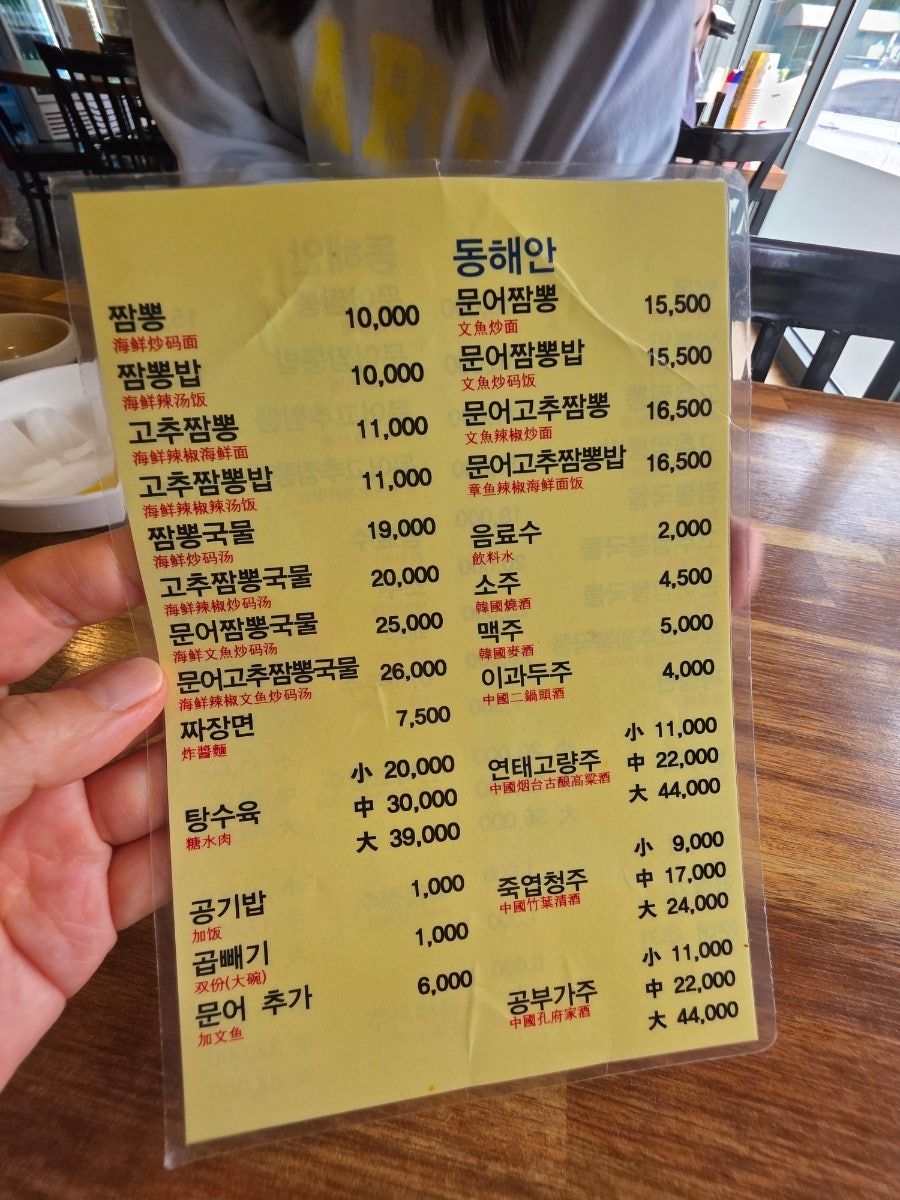 동해안
짬뽕 10,000
海鲜炒码面
짬뽕밥 10,000
海鲜辣汤饭
고추짬뽕 11,000
海鲜辣椒海鲜面
고추짬뽕밥 11,000
海鲜辣椒辣汤饭
짬뽕국물 19,000
海鲜炒码汤
고추짬뽕국물 20,000
海鲜辣椒炒码汤
문어짬뽕국물 25,000
海鲜文魚炒码汤
문어고추짬뽕국물 26,000
海鲜辣椒文鱼炒码汤
짜장면 7,500
炸醬麵
小 20,000
탕수육 中 30,000
糖水肉
大 39,000
공기밥 1,000
加饭
곱빼기 1,000
双份(大碗)
문어 추가 6,000
加文鱼
문어짬뽕 15,500
文魚炒面
문어짬뽕밥 15,500
文魚炒码饭
문어고추짬뽕 16,500
文魚辣椒炒面
문어고추짬뽕밥 16,500
章鱼辣椒海鲜面饭
음료수 2,000
飲料水
소주 4,500
韓國燒酒
맥주 5,000
韓國麥酒
이과두주 4,000
中國二鍋頭酒
小 11,000
연태고량주 中 22,000
中國烟台古酿高粱酒
大 44,000
小 9,000
죽엽청주 中 17,000
中國竹葉清酒
大 24,000
小 11,000
공부가주 中 22,000
中國孔府家酒
大 44,000